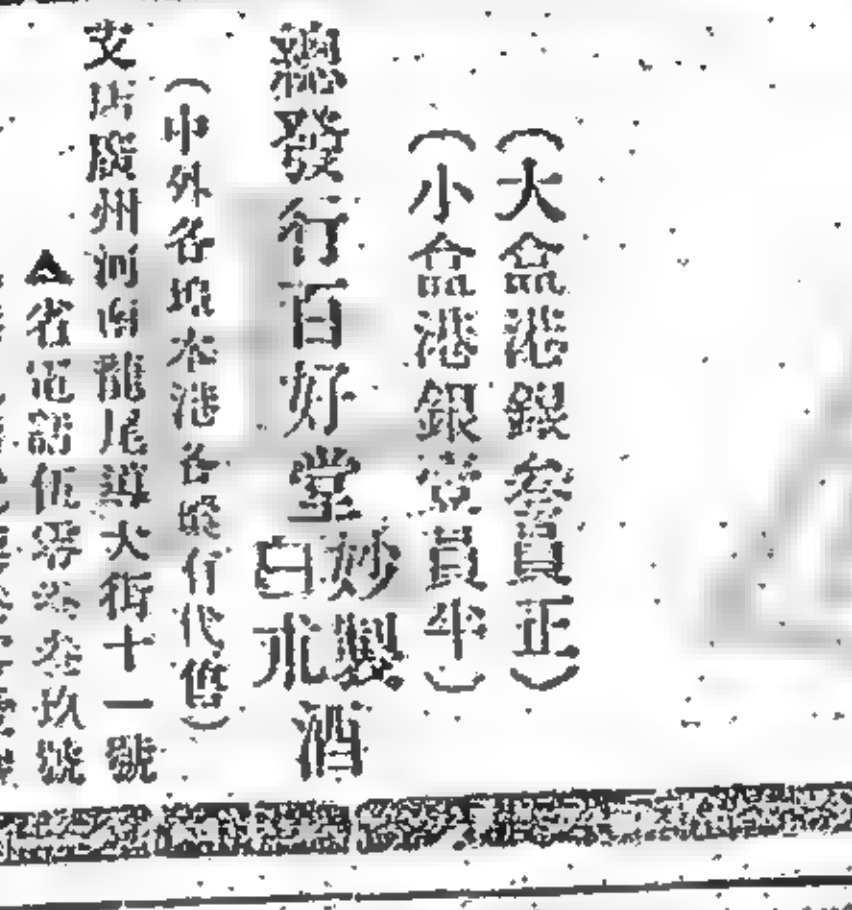 （大盒港銀叁員正）
（小盒港銀壹員半）
總發行百好堂妙製白朮酒
（中外各埠本港各縣行代售）
支店廣州河南龍尾導大街十一號
▲省電話伍零叁玖號